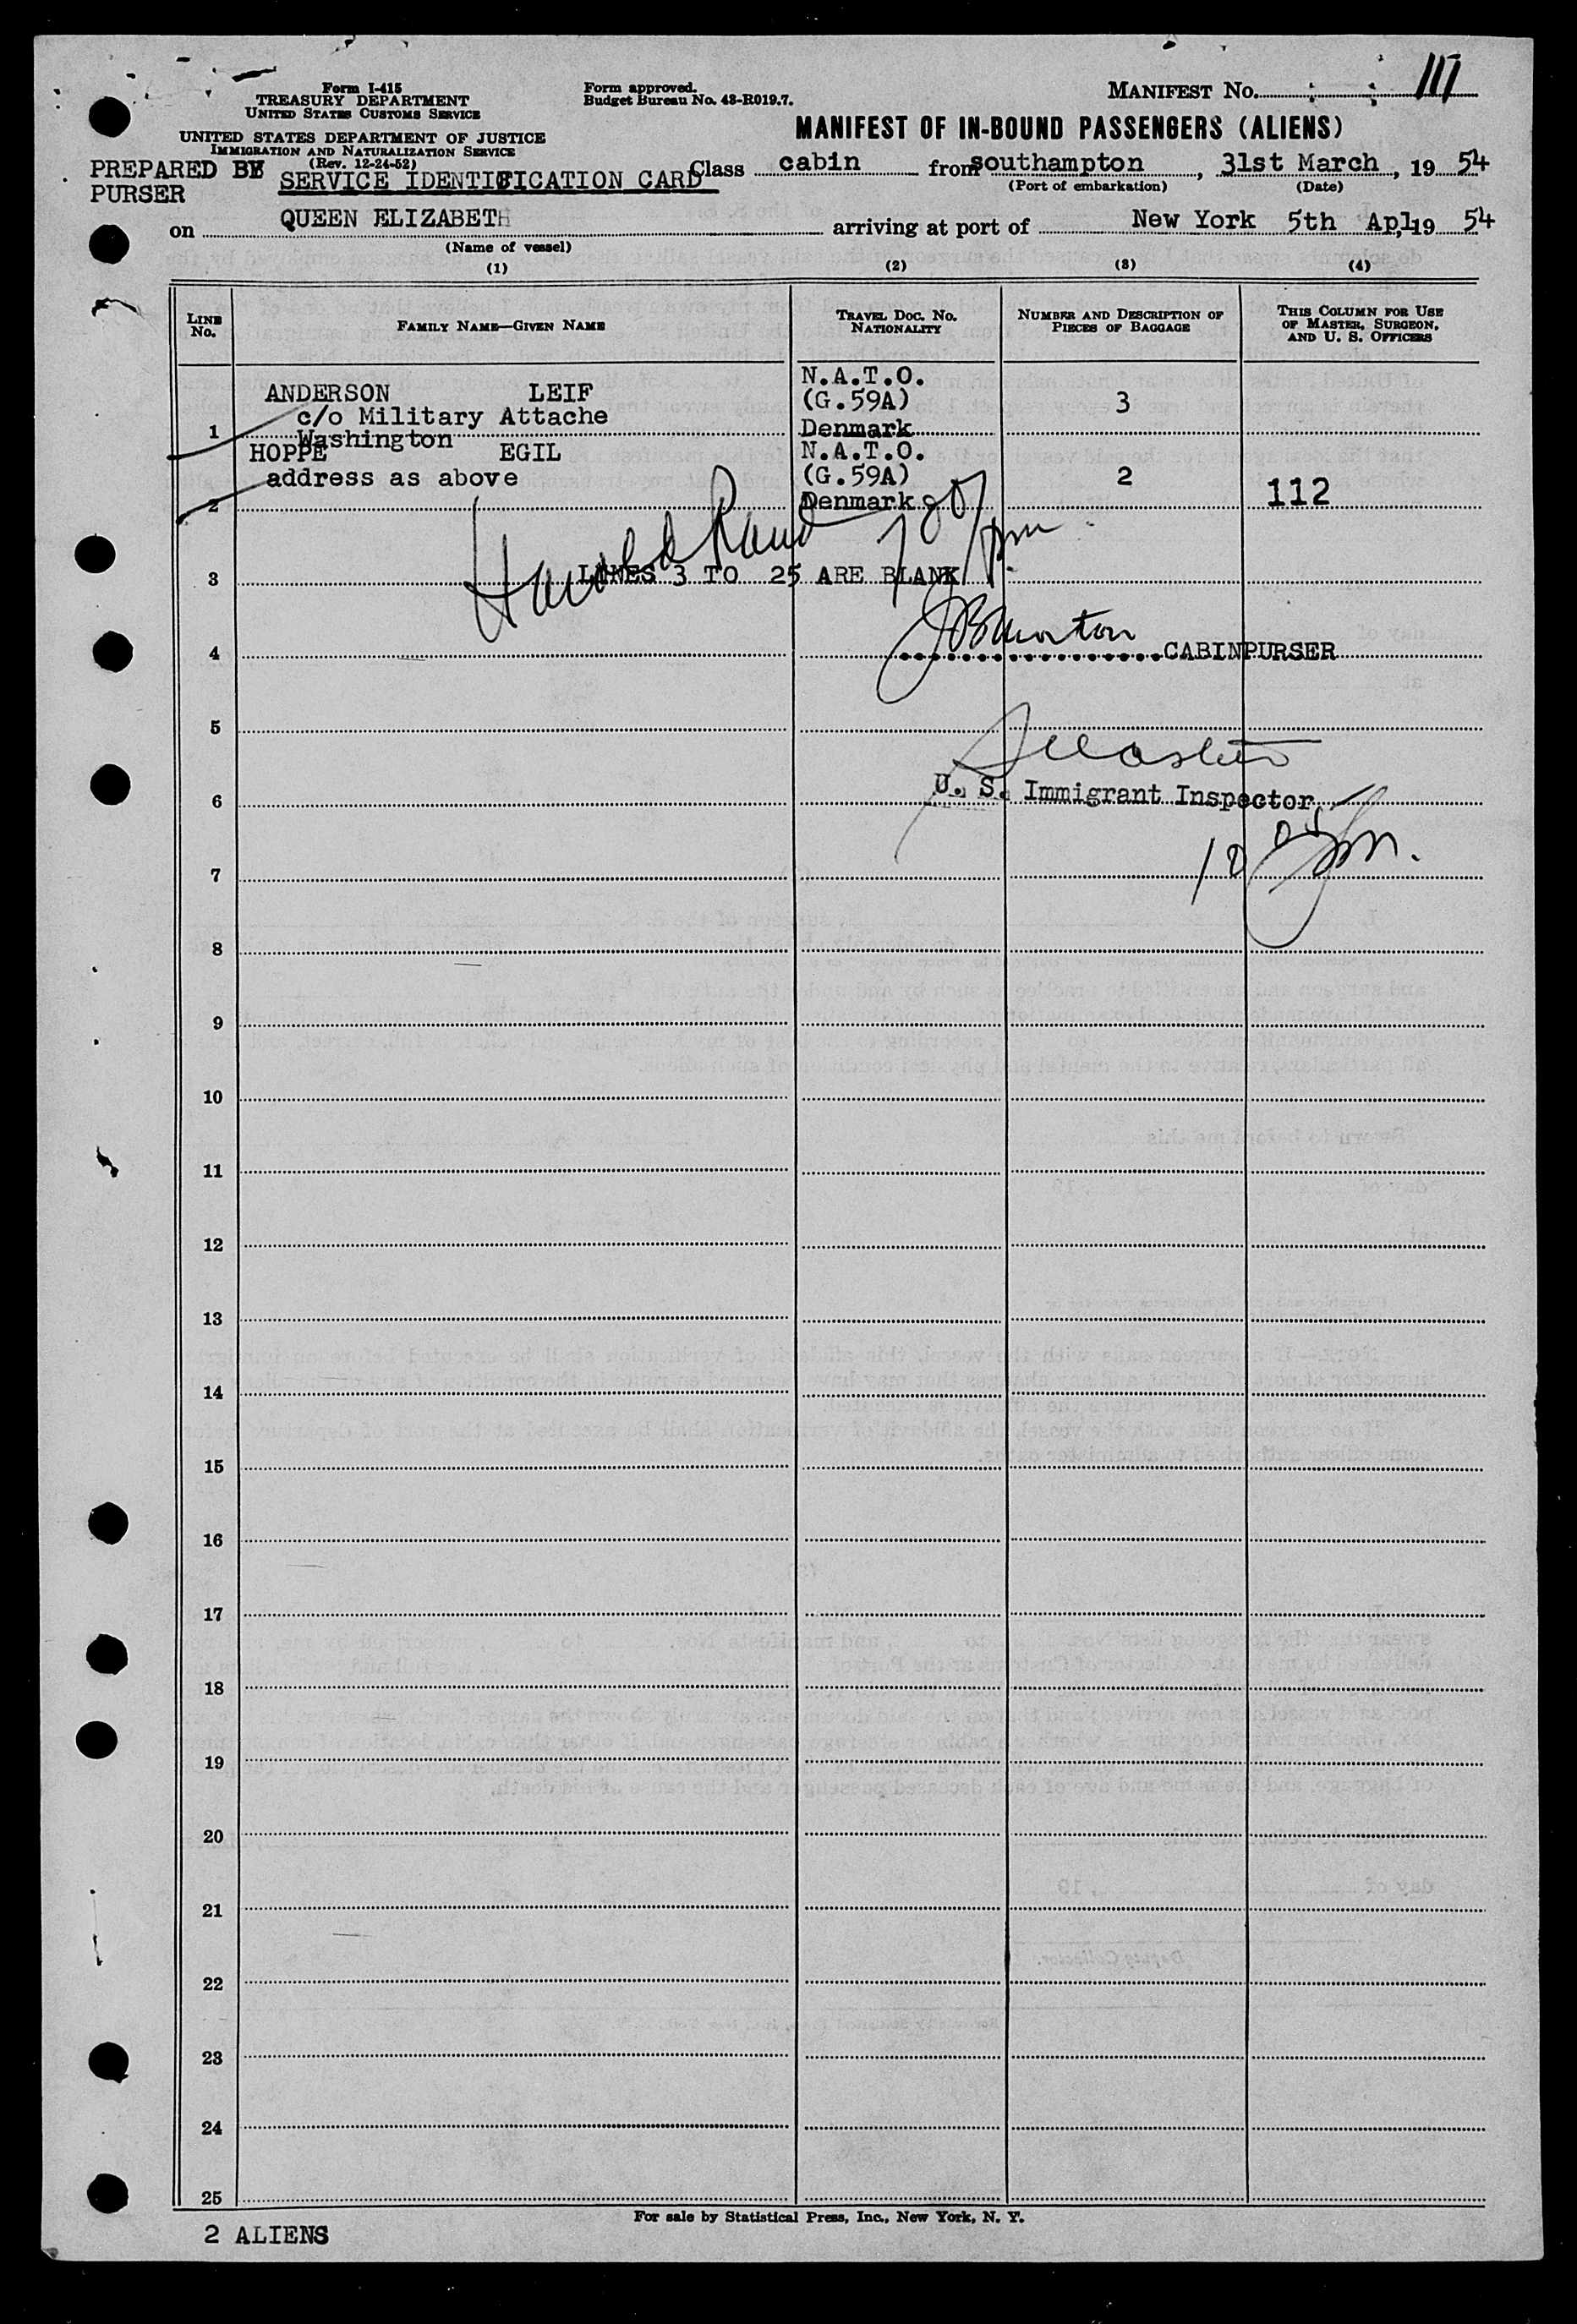 Form I-415
TREASURY DEPARTMENT
UNITED STATES CUSTOMS SERVICE
UNITED STATES DEPARTMENT OF JUSTICE
IMMIGRATION AND NATURALIZATION SERVICE
(Rev. 12-24-52)
Form approved.
Budget Bureau No. 43-R019.7.
MANIFEST No. 117
MANIFEST OF IN-BOUND PASSENGERS (ALIENS)
PREPARED BY
PURSER
SERVICE IDENTIFICATION CARD
Class cabin from southampton, 31st March, 19 54
(Port of embarkation) (Date)
on QUEEN ELIZABETH arriving at port of New York 5th Apl, 19 54
(Name of vessel)
(1) (2) (3) (4)
LINE No. FAMILY NAME—GIVEN NAME TRAVEL DOC. NO. NATIONALITY NUMBER AND DESCRIPTION OF PIECES OF BAGGAGE THIS COLUMN FOR USE OF MASTER, SURGEON, AND U. S. OFFICERS
N.A.T.O.
ANDERSON LEIF (G.59A) 3
c/o Military Attache
1 Washington Denmark
HOPPE EGIL N.A.T.O.
address as above (G.59A) 2
2 Denmark 112
Harold
3 LINES 3 TO 25 ARE BLANK
4 CABINPURSER
5
6 U. S. Immigrant Inspector
7
8
9
10
11
12
13
14
15
16
17
18
19
20
21
22
23
24
25
For sale by Statistical Press, Inc., New York, N. Y.
2 ALIENS